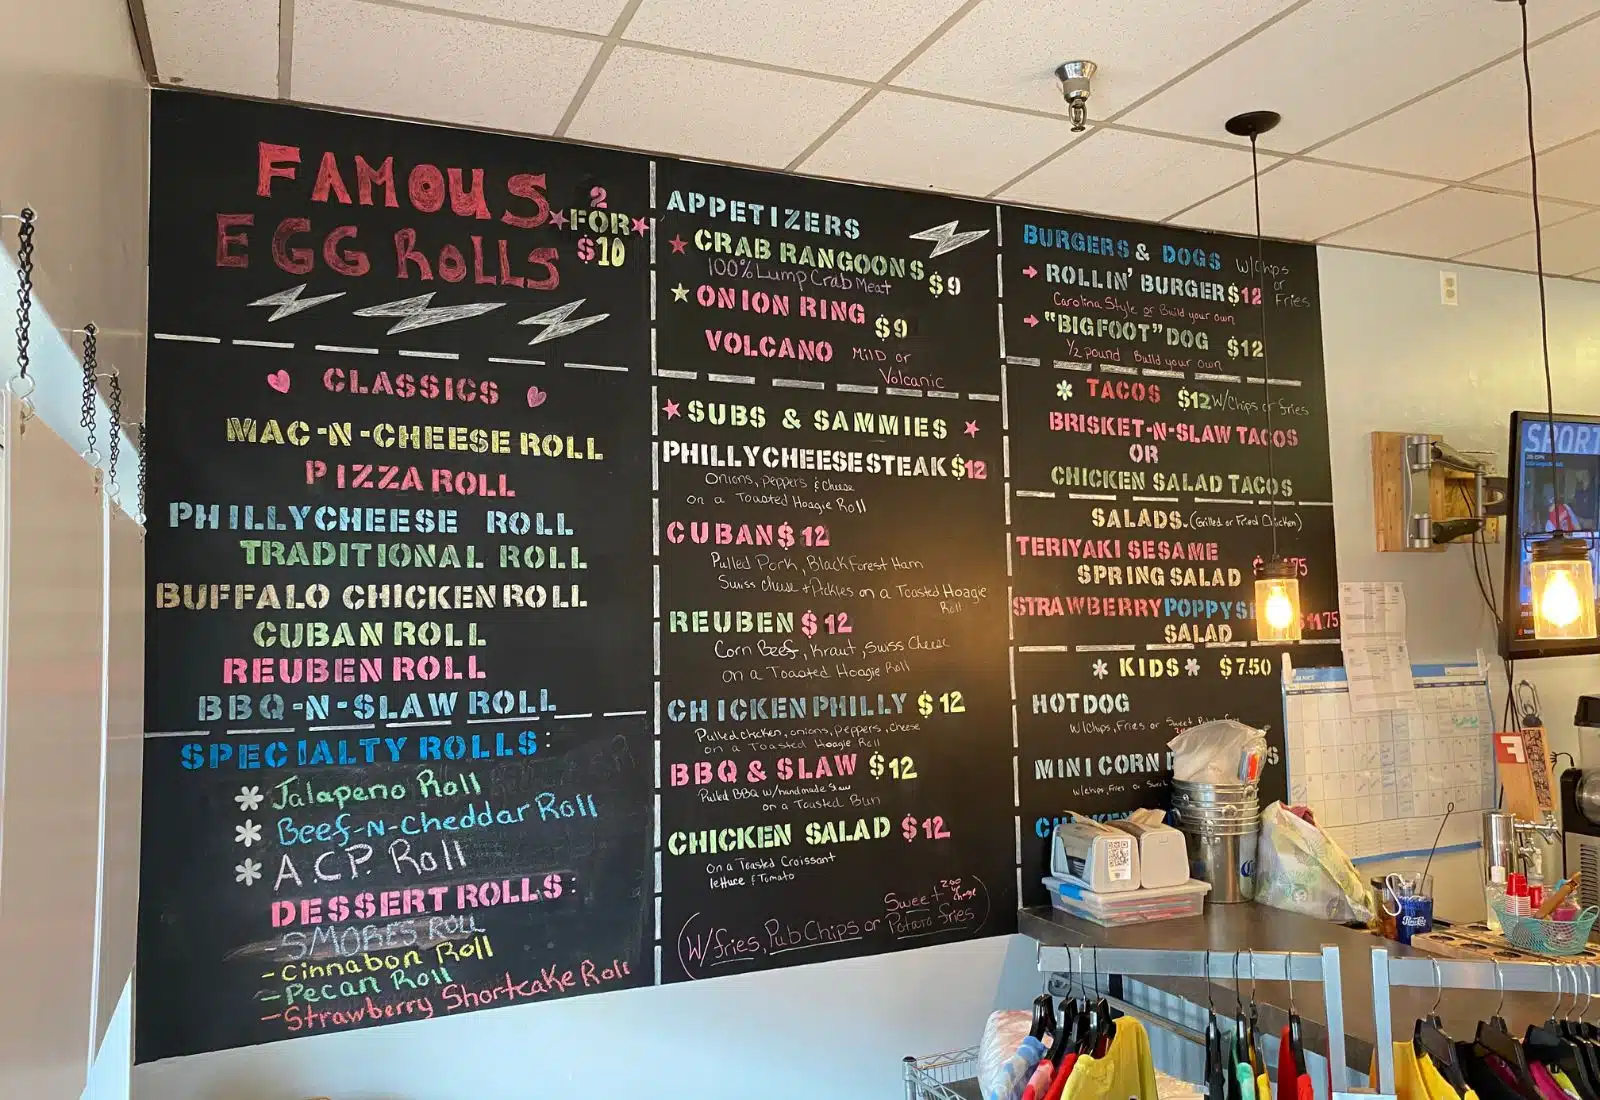 FAMOUS
EGG ROLLS
2
FOR
$10
CLASSICS
MAC-N-CHEESE ROLL
PIZZA ROLL
PHILLYCHEESE ROLL
TRADITIONAL ROLL
BUFFALO CHICKEN ROLL
CUBAN ROLL
REUBEN ROLL
BBQ-N-SLAW ROLL
SPECIALTY ROLLS:
Jalapeno Roll
Beef-N-Cheddar Roll
A.C.P. Roll
DESSERT ROLLS:
-SMORES ROLL
-Cinnabon Roll
-Pecan Roll
-Strawberry Shortcake Roll
APPETIZERS
CRAB RANGOONS $9
100% Lump Crab Meat
ONION RING $9
VOLCANO Mild or
Volcanic
SUBS & SAMMIES
PHILLYCHEESESTEAK $12
Onions, peppers & Cheese
on a Toasted Hoagie Roll
CUBAN $12
Pulled Pork, Black Forest Ham
Swiss cheese + Pickles on a Toasted Hoagie
Roll
REUBEN $12
Corn Beef, Kraut, Swiss Cheese
on a Toasted Hoagie Roll
CHICKEN PHILLY $12
Pulled chicken, onions, peppers, cheese
on a Toasted Hoagie Roll
BBQ & SLAW $12
Pulled BBQ w/handmade Slaw
on a Toasted Bun
CHICKEN SALAD $12
on a Toasted Croissant
lettuce & Tomato
(W/fries, Pub Chips or Sweet Potato fries)
BURGERS & DOGS W/Chips
or
Fries
ROLLIN' BURGER $12
Carolina Style or Build your own
"BIGFOOT" DOG $12
1/2 pound Build your own
TACOS $12 W/Chips or fries
BRISKET-N-SLAW TACOS
OR
CHICKEN SALAD TACOS
SALADS. (Grilled or Fried Chicken)
TERIYAKI SESAME
SPRING SALAD 75
STRAWBERRY POPPY $11.75
SALAD
KIDS $7.50
HOTDOG
W/Chips, Fries or Sweet
MINI CORN
W/chips, fries or
SPORT